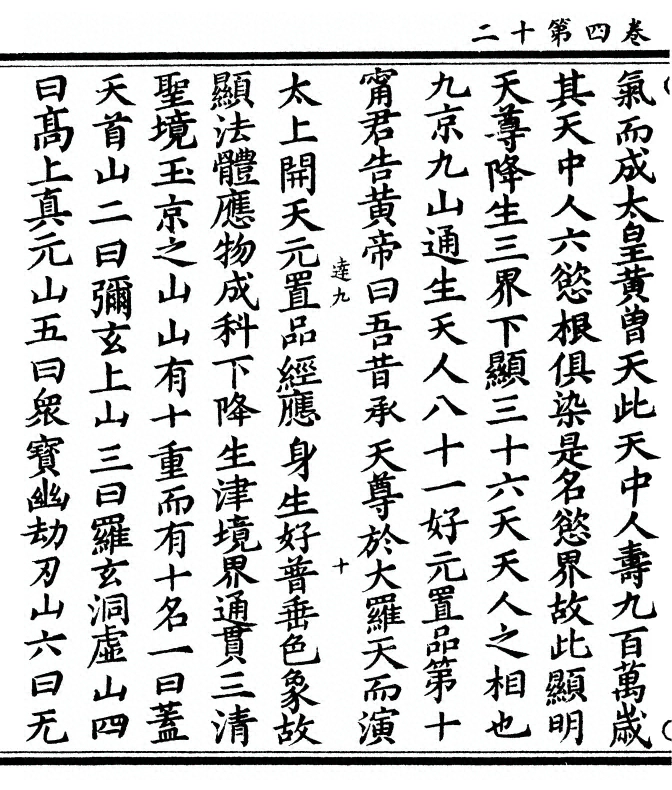 二十第四卷
氣而成太皇黃曾天此天中人壽九百萬歲
其天中人六慾根俱染是名慾界故此顯明
天尊降生三界下顯三十六天天人之相也
九京九山通生天人八十一好元置品第十
甯君告黃帝曰吾昔承天尊於大羅天而演
達九
十
太上開天元置品經應身生好普垂色象故
顯法體應物成科下降生津境界通貫三清
聖境玉京之山山有十重而有十名一曰蓋
天首山二曰彌玄上山三曰羅玄洞虛山四
曰髙上真元山五曰衆寶幽劫刃山六曰无